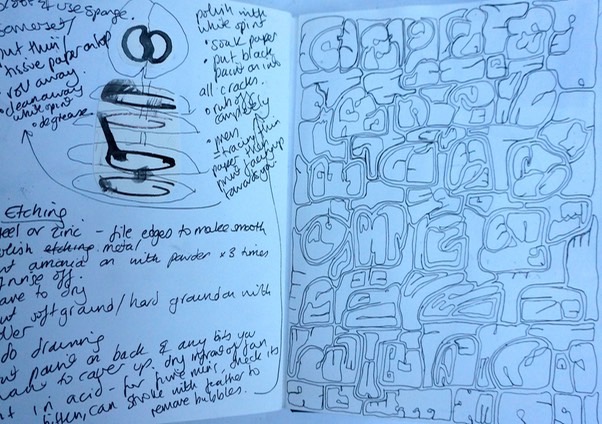 & use sponge.
somerset/
put thin/
tissue paper on top
• roll away.
• clean away
white spirit
• degrease
polish with
white spirit
• soak paper
• put black
paint on into
all cracks.
• rub off
completely
• then
tracing/thin
paper then
print facing up
towards you
Etching
steel or zinc - file edges to make smooth
polish etching metal
put on with powder x3 times
rinse off.
leave to dry
put soft ground/hard ground on with
do drawing
put on back & any bits you
want to cover up. dry infront of fan
put in acid - for five mins, check its
bitten, can stroke with feather to
remove bubbles.